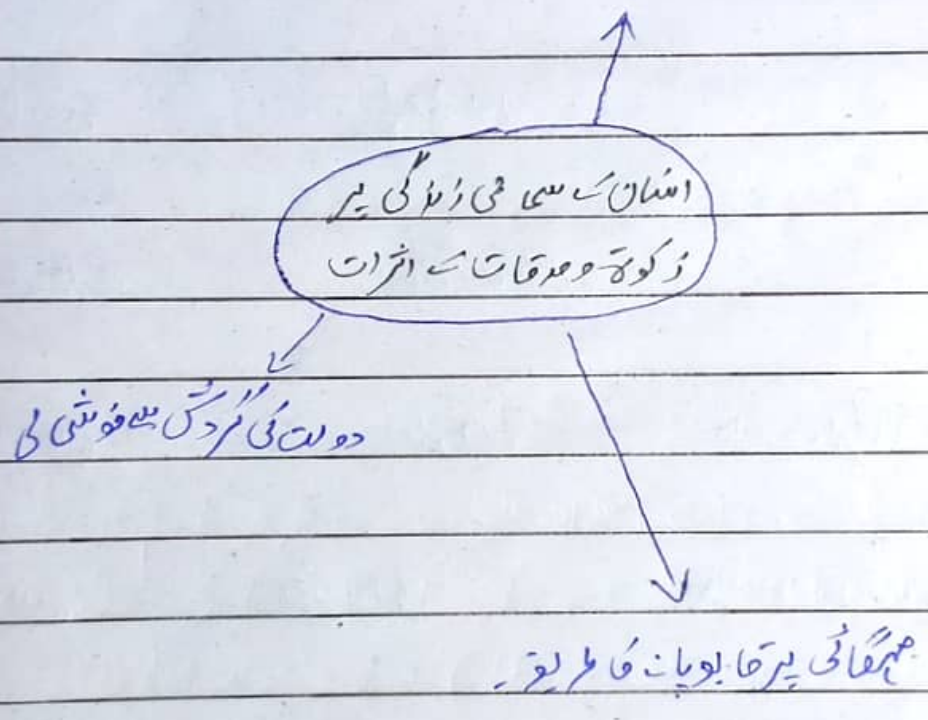 انسان کے سماجی زندگی پر
زکوٰۃ و صدقات کے اثرات
دولت کی گردش سے خوشحالی
مہنگائی پر قابو پانے کا طریقہ